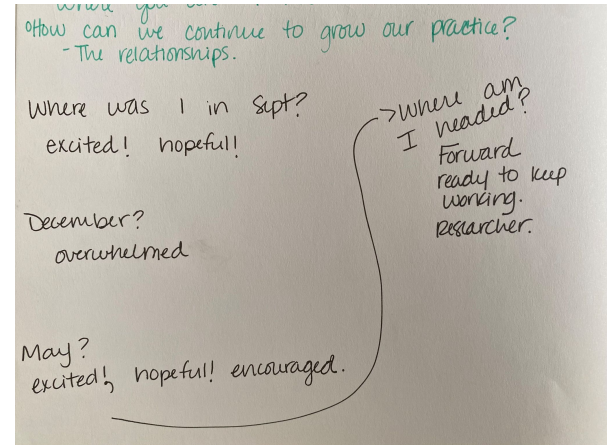 where you
°How can we continue to grow our practice?
- The relationships.
Where was I in Sept?
excited! hopeful!
December?
overwhelmed
May?
excited!, hopeful! encouraged.
→Where am
I headed?
Forward
ready to keep
working.
Researcher.